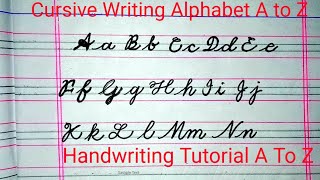 Cursive Writing Alphabet A to Z
A a B b C c D d E e
F f G g H h I i J j
K k L l M m N n
Handwriting Tutorial A To Z